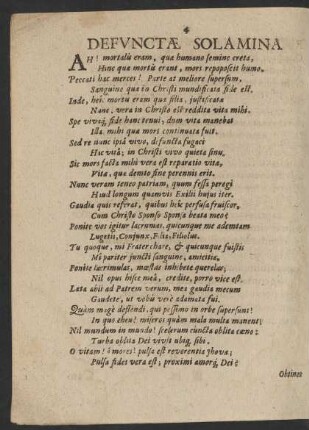 4
DEFVNCTÆ SOLAMINA
AH! mortalis eram, qua humano semine creta,
Hinc qua mortis erant, mors repoposcit humo.
Peccati hac merces! Parte at meliore supersum,
Sanguine qua in Christi mundificata fide est.
Inde, hei! mortua eram qua filia, justificata
Nunc, vera in Christo est reddita vita mihi.
Spe vivaq́; fide hanc tenui, dum vita manebat
Illa, mihi qua mors continuata fuit.
Sed re nunc ipsâ vivo, defuncta fugaci
Hac vitâ; in Christi vivo quieta sinu.
Sic mors facta mihi vera est reparatio vita,
Vita, qua demto fine perennis erit.
Nunc veram teneo patriam, quum fessa peregi
Haud longum quamvis Exilii hujus iter.
Gaudia quis referat, quibus hîc perfusa fruiscor,
Cum Christo Sponso Sponsa beata meo?
Ponite vos igitur lacrumas, quicunque me ademtam
Lugetis, Conjunx, Filia, Filiolus.
Tu quoque, mi Frater chare, & quicunque fuistis
Mî pariter juncti sanguine, amicitiâ.
Ponite lacrimulas, mœstas inhibete querelas;
Nil opus hisce meâ, credite, porrò vice est.
Læta abii ad Patrem verum, mea gaudia mecum
Gaudete, ut vobis verè adamata fui.
Quàm magè deflendi, qui passim in orbe supersunt!
In quo eheu! miseros quàm mala multa manent;
Nil mundum in mundo! scelerum cuncta oblita cæno:
Turba oblita Dei vivit ubiq́; sibi.
O vitam! ô mores! pulsa est reverentia Jhova;
Pulsa fides vera est; proximi amorq́; Dei:
Obtinet